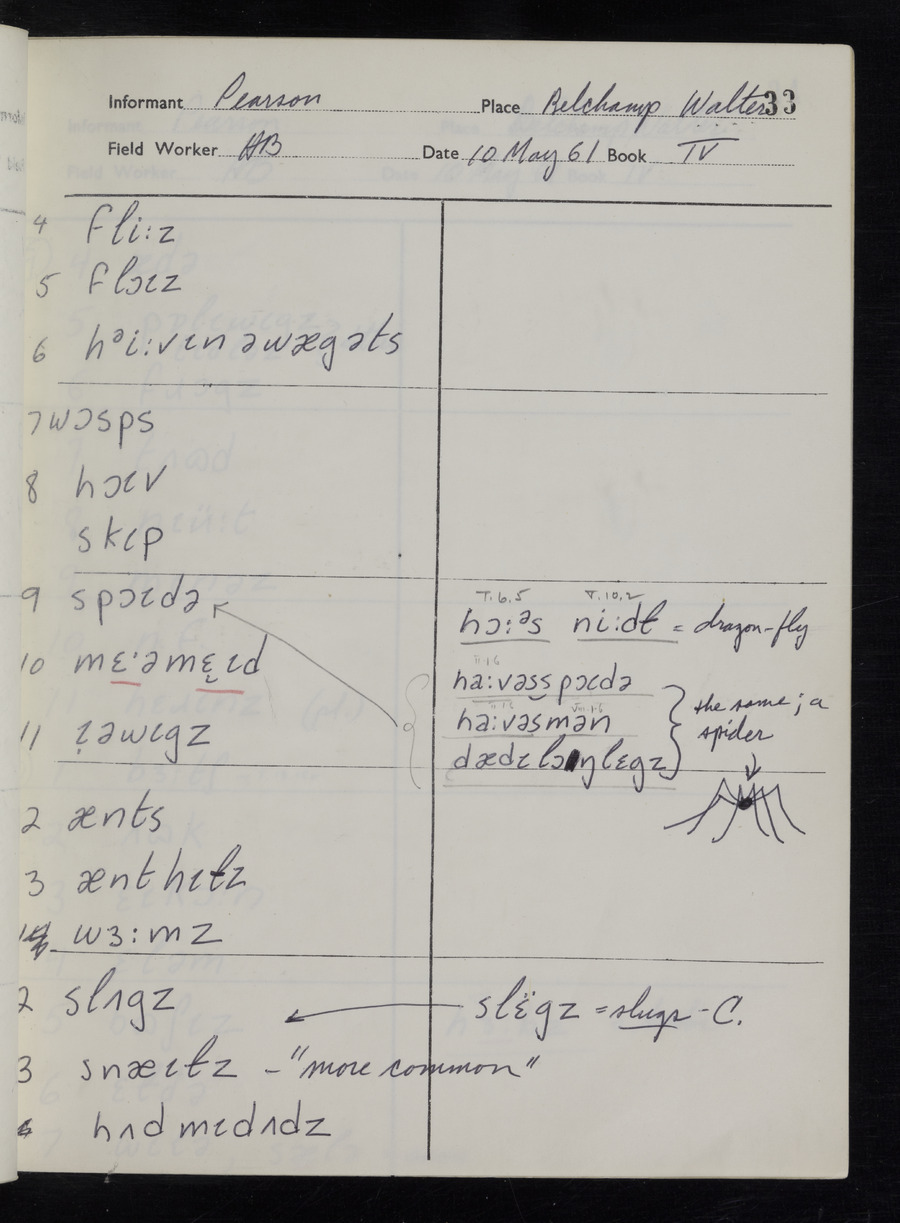 Informant Pearson Place Belchamp Walter 33
Field Worker HB Date 10 May 61 Book IV
4 fli:z
5 flɔɪz
6 hᵊi:vɪn əwægəts
7 wɔsps
8 hɔɪv
skɪp
9 spɔɪdə
T.6.5 V.10.2
hɔ:ᵊs ni:dɫ = dragon-fly
10 mɛ·əmɛ̨ɪd
ha:vəsspɔɪdə
ha:vəsmən
the same; a
spider
11 ɪ̨əwɪgz
dædɪlɔŋlɛgz
2 ænts
3 ænthɪɫz
w3:mz
2 slʌgz
slɛ̈gz = slugs - C.
3 snæɪɫz - "more common"
hʌdmɪdʌdz